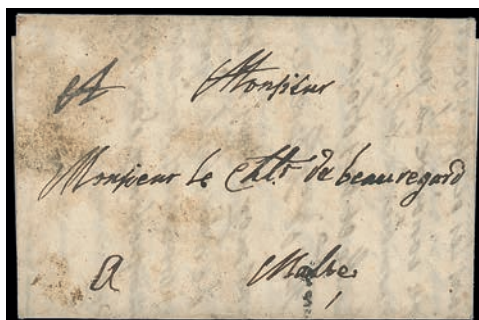 A Monsieur
Monsieur le Chlr de beauregard
A Malte